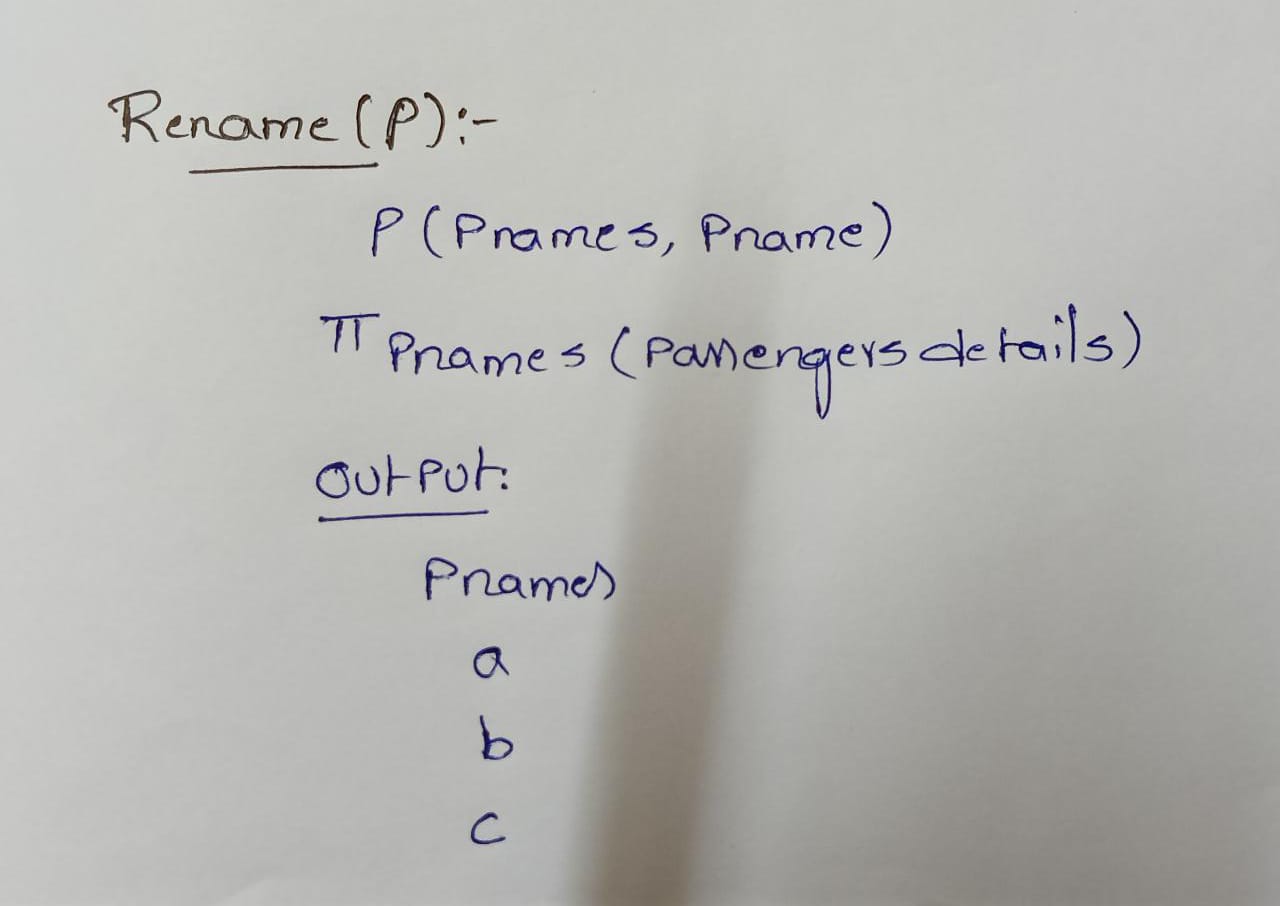 Rename (ρ):-
ρ (Pnames, Pname)
π Pnames (Passengers details)
output:
Pnames
a
b
c